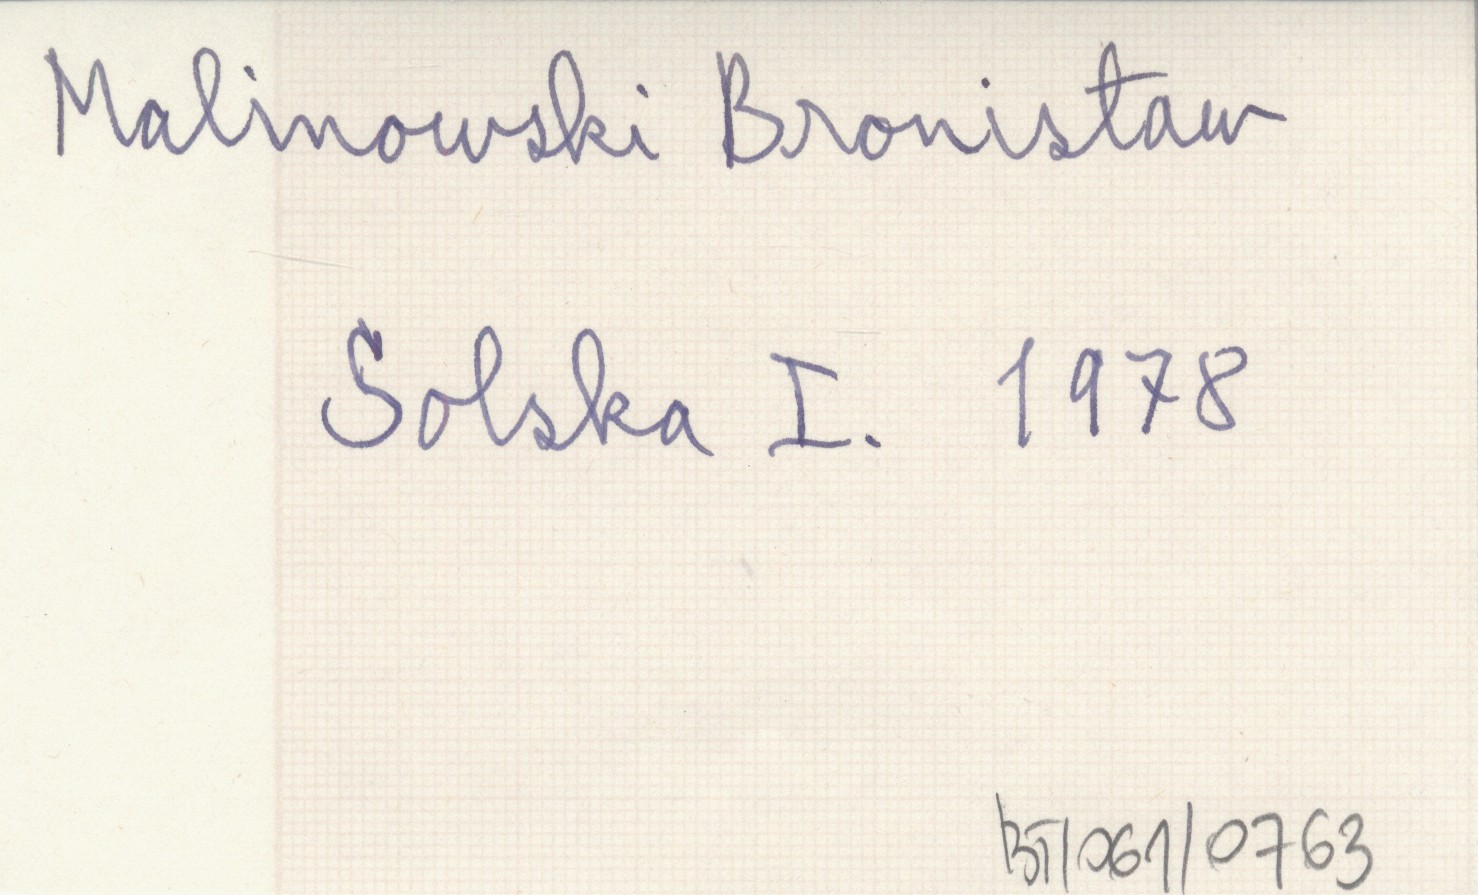 Malinowski Bronisław
Solska I. 1978
BT/061/0763